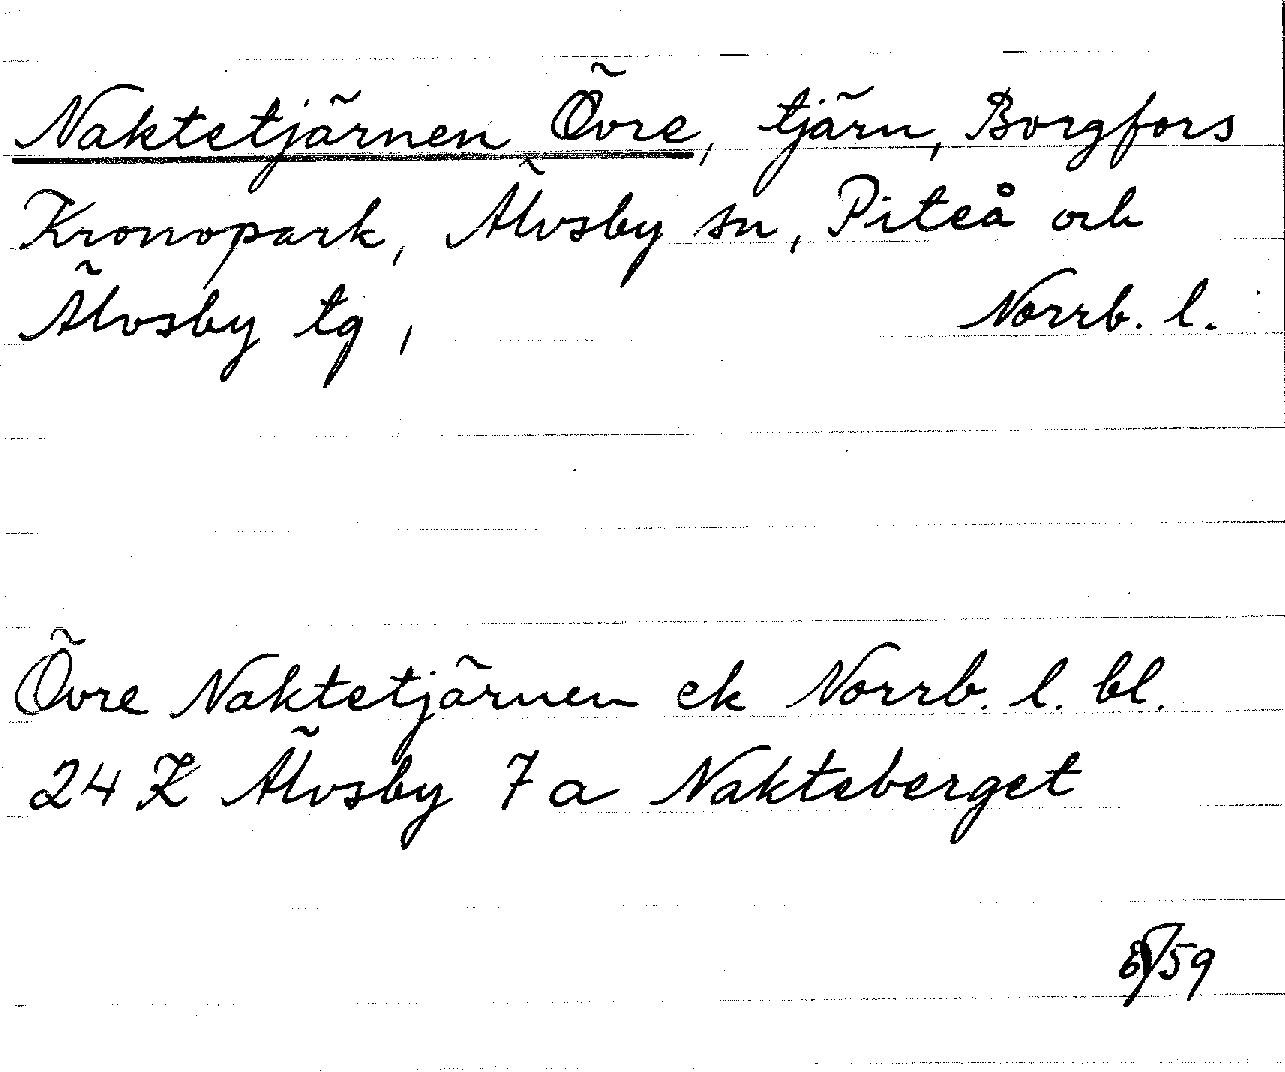 Naktetjärnen Övre, tjärn, Borgfors
Kronopark, Älvsby sn, Piteå och
Älvsby tg, Norrb. l.
Övre Naktetjärnen ek Norrb. l. bl.
24 K Älvsby 7a Nakteberget